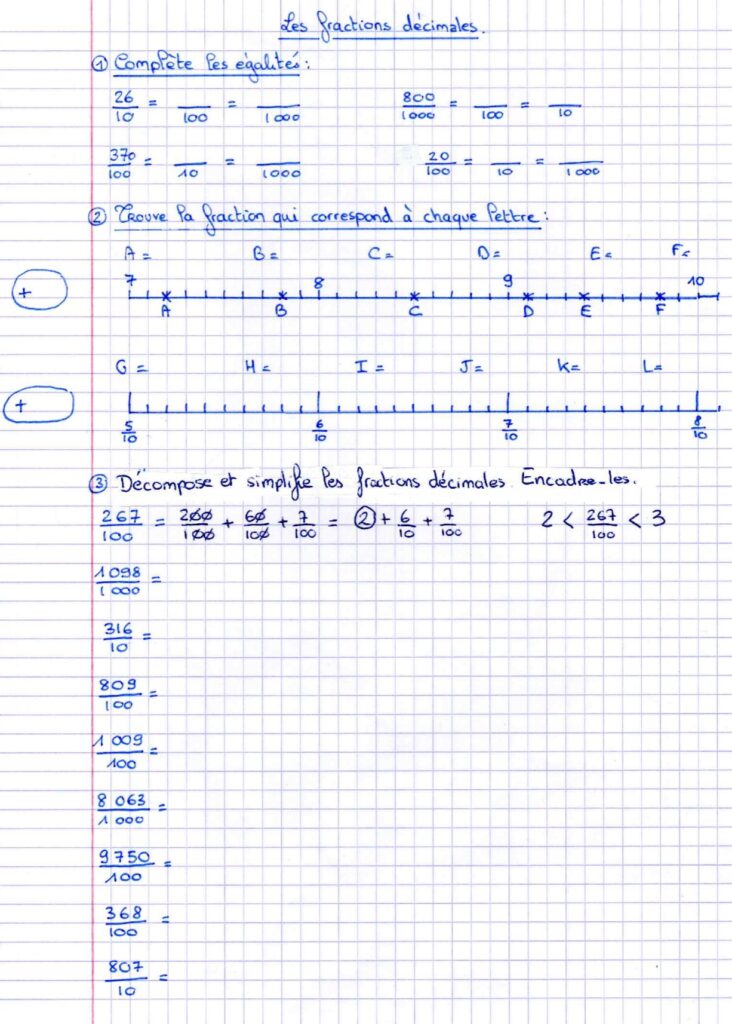 Les fractions décimales.
① Complète les égalités :
26/10 = __/100 = __/1000 800/1000 = __/100 = __/10
370/100 = __/10 = __/1000 20/100 = __/10 = __/1000
② Trouve la fraction qui correspond à chaque lettre :
A = B = C = D = E = F =
7 8 9 10
+
A B C D E F
G = H = I = J = K = L =
+
5/10 6/10 7/10 8/10
③ Décompose et simplifie les fractions décimales. Encadre-les.
267/100 = 200/100 + 60/100 + 7/100 = ② + 6/10 + 7/100 2 < 267/100 < 3
1098/1000 =
316/10 =
809/100 =
1 009/100 =
8 063/1 000 =
9750/100 =
368/100 =
807/10 =